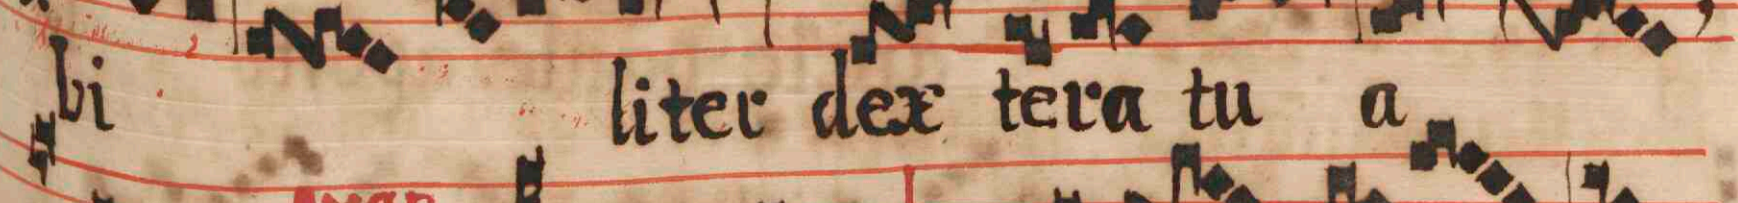 bi liter dex tera tu a